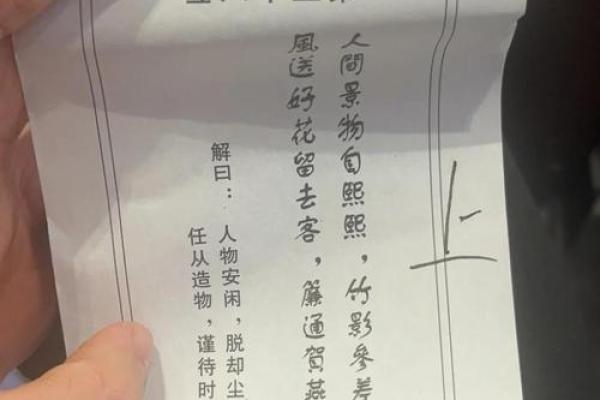 上
人間景物自熙熙，竹影參差
風送好花留去客，簾通賀燕
解曰：人物安闲，脱却尘
任从造物，谨待时